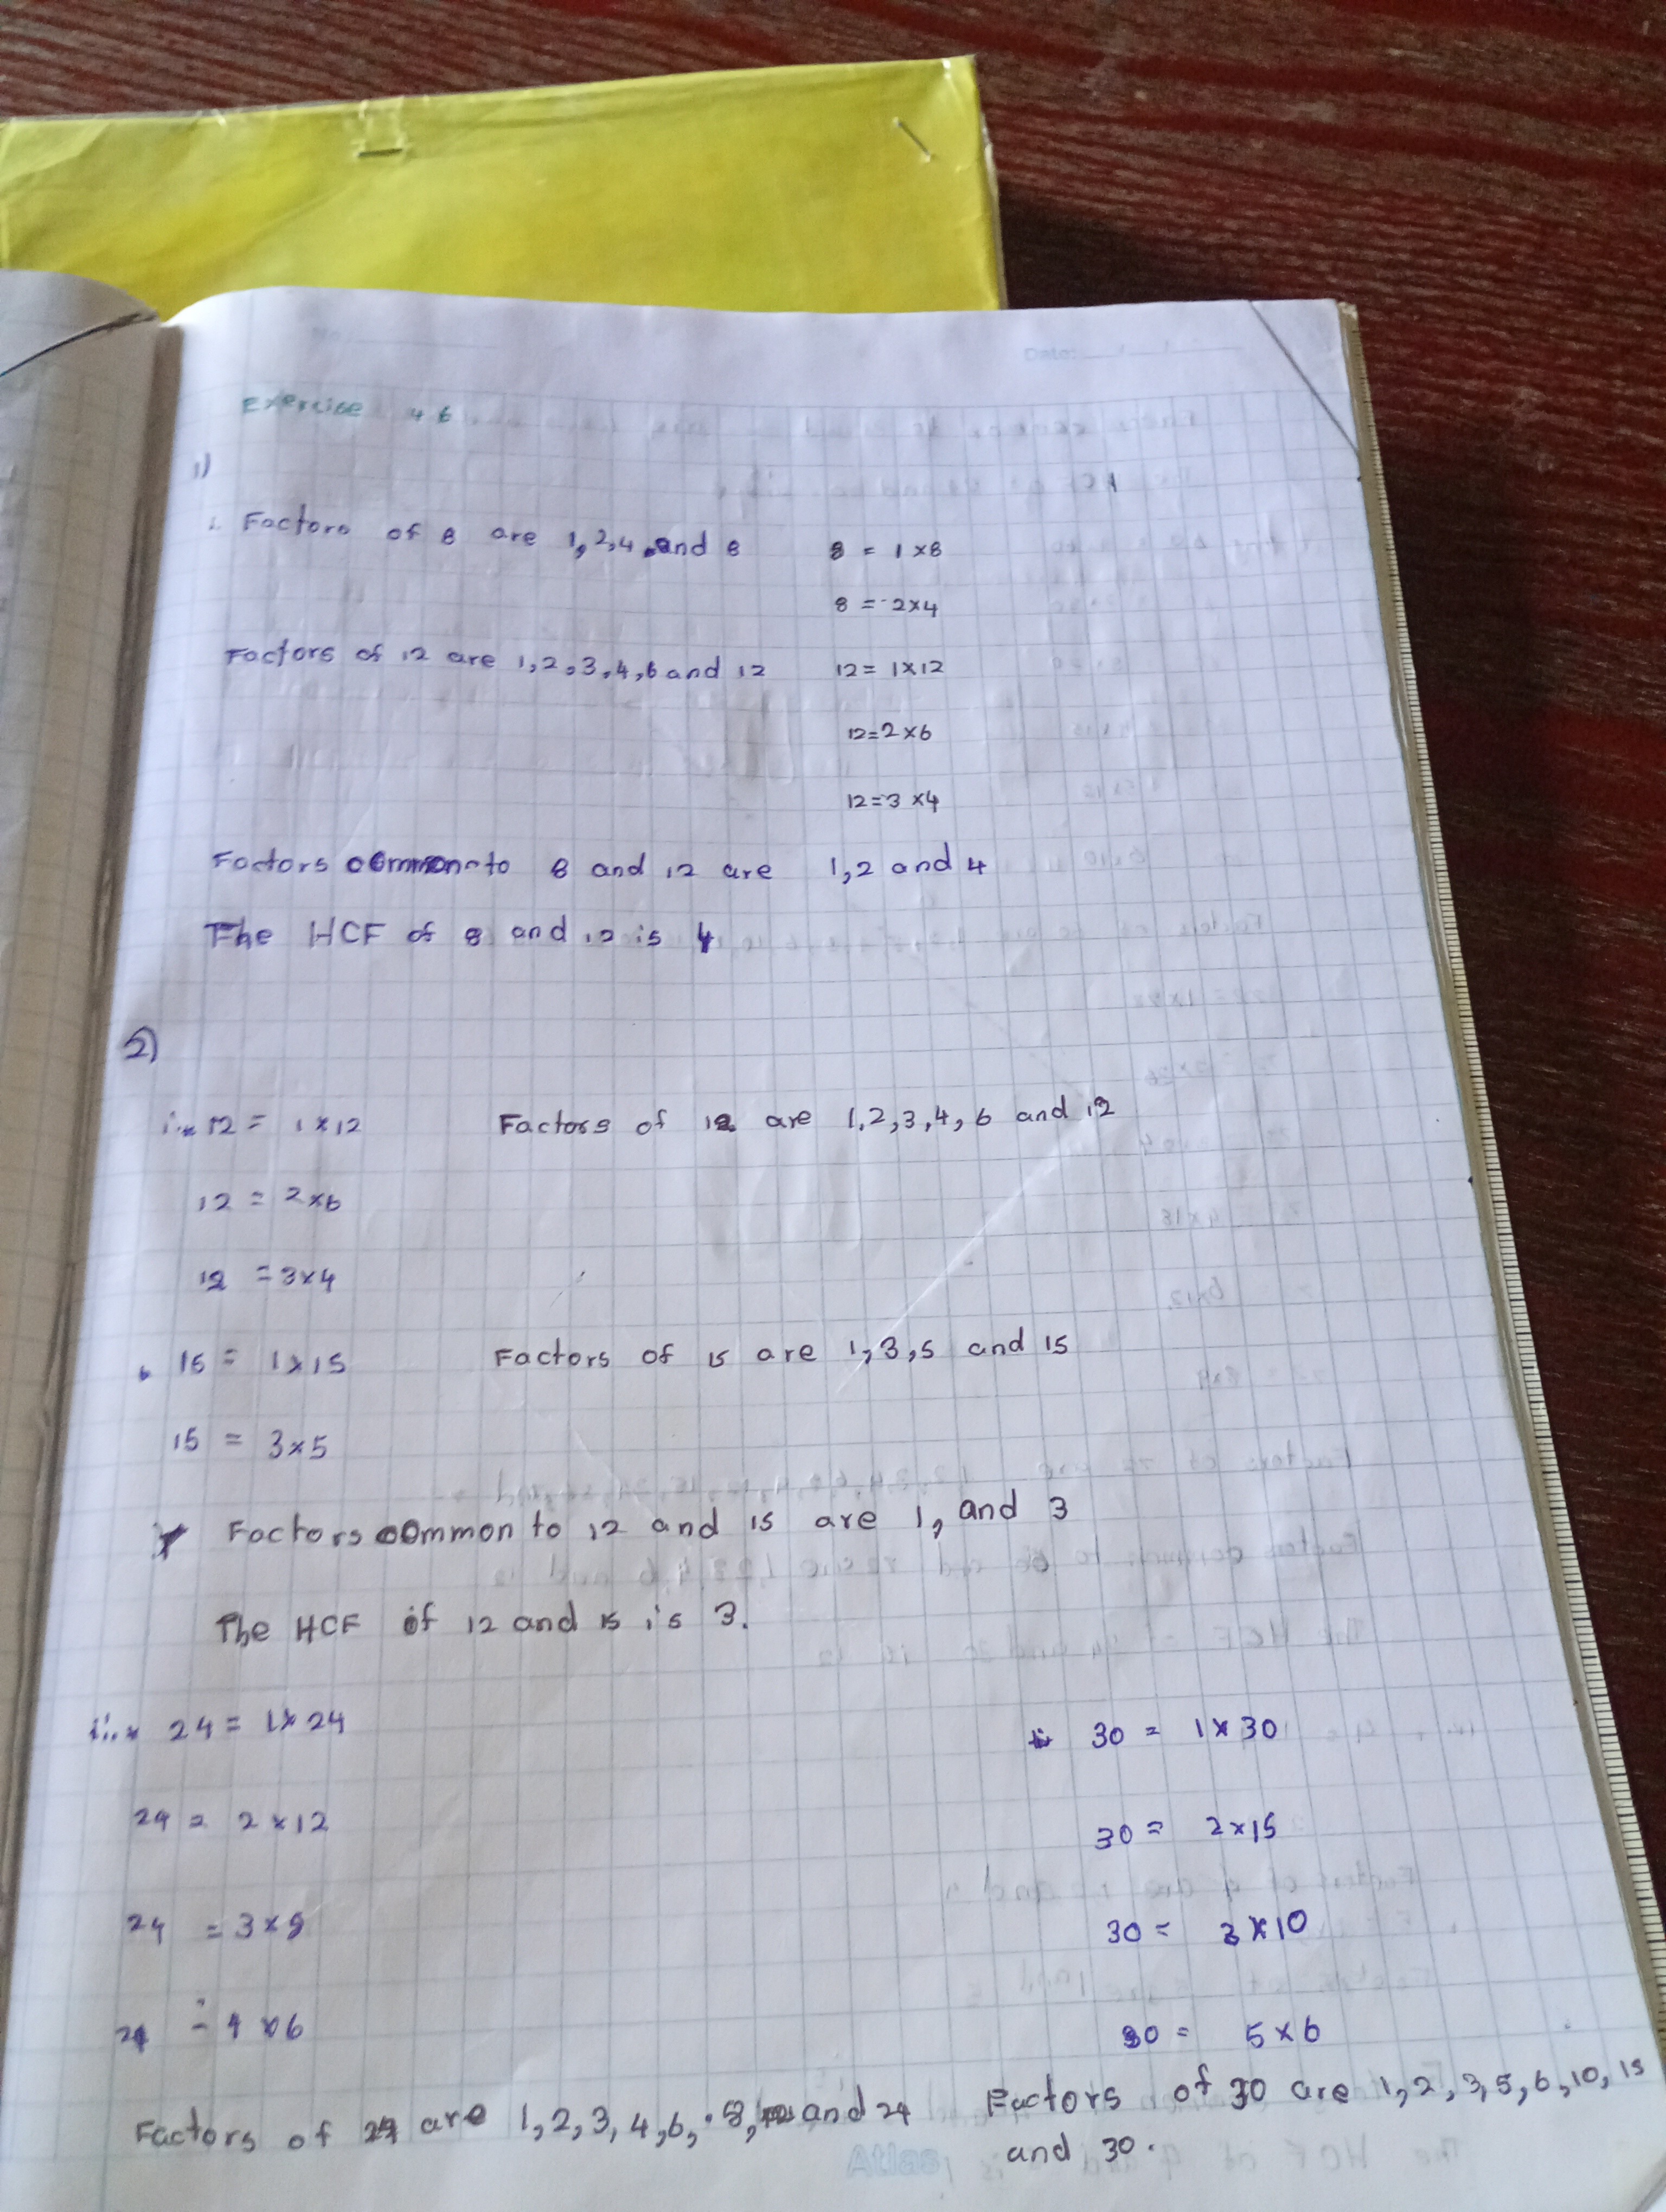 Date:
Exercise 4 6
1)
i. Factors of 8 are 1,2,4 and 8 8 = 1 × 8
8 = 2×4
Factors of 12 are 1,2,3,4,6 and 12 12 = 1×12
12=2×6
12=3×4
Factors common to 8 and 12 are 1,2 and 4
The HCF of 8 and 12 is 4
2)
i. 12 = 1 × 12 Factors of 12 are 1,2,3,4,6 and 12
12 = 2×6
12 = 3×4
15 = 1×15 Factors of 15 are 1,3,5 and 15
15 = 3×5
Factors common to 12 and 15 are 1, and 3
The HCF of 12 and 15 is 3.
ii. 24 = 1×24 30 = 1×30
24 = 2×12 30 = 2×15
24 = 3×8 30 = 3×10
24 = 4×6 30 = 5×6
Factors of 24 are 1,2,3,4,6, 8, 12 and 24 Factors of 30 are 1,2,3,5,6,10,15
and 30.
Atlas